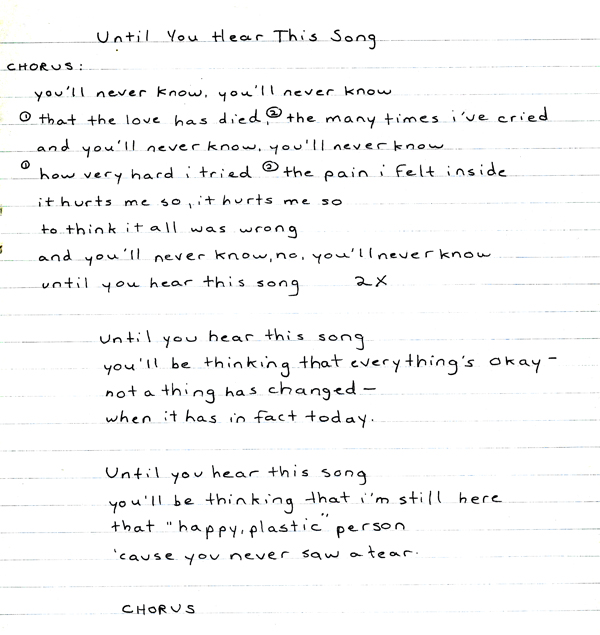 Until You Hear This Song
CHORUS:
you'll never know, you'll never know
① that the love has died, ② the many times i've cried
and you'll never know, you'll never know
① how very hard i tried ② the pain i felt inside
it hurts me so, it hurts me so
to think it all was wrong
and you'll never know, no, you'll never know
until you hear this song 2X
Until you hear this song
you'll be thinking that everything's okay –
not a thing has changed –
when it has in fact today.
Until you hear this song
you'll be thinking that i'm still here
that "happy, plastic" person
'cause you never saw a tear.
CHORUS